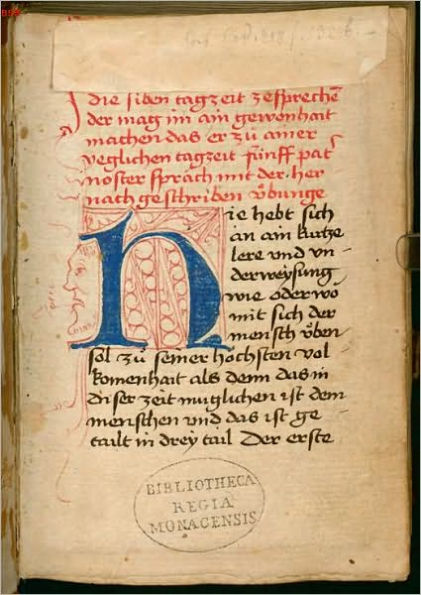 die siben tagzeit zesprechē
der mag im ain gewonhait
machen das er zů ainer
yeglichen tagzeit fünff pat
noster spräch mit der her
nach geschriben v̈bunge
Hie hebt sich
an ain kurtze
lere vnd vn
derweysung
wie oder wo
mit sich der
mensch v̈ben
sol zů seiner höchsten vol
komenhait als denn das in
diser zeit muglichen ist dem
menschen vnd das ist ge
tailt in drey tail Der erste
BIBLIOTHECA
REGIA
MONACENSIS